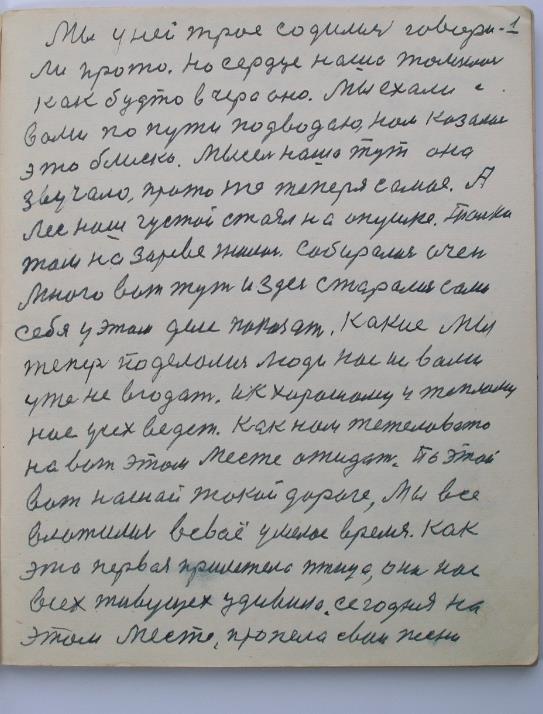 Мы у ней трое содимля говори- 1
ли прото. Но сердце нашо томилля
как будто вчера оно. Мы ехали с
вами по пути подводаю, ном казалос
это блиско. Мысел нашо тут она
звучало, прото тоя теперя самае. А
лес наш густой стоял на опушке. Толка
там на зареве жили. Собирамля очен
много вот тут и здес старалля сами
себя у этом деле показат. Какие мы
тепер поделолия люди нас и вами
уже не вгодат. И к хорошому и теплому
нас усех ведет. Как ном тежеловато
на вот этом месте ожидат. По этой
вот наснай такой дороге, мы все
вложилля всваё умелое время. Как
это первая прилетела птица, она нас
всех живущех удивило. Сегодня на
этом месте, пропела сваи песни